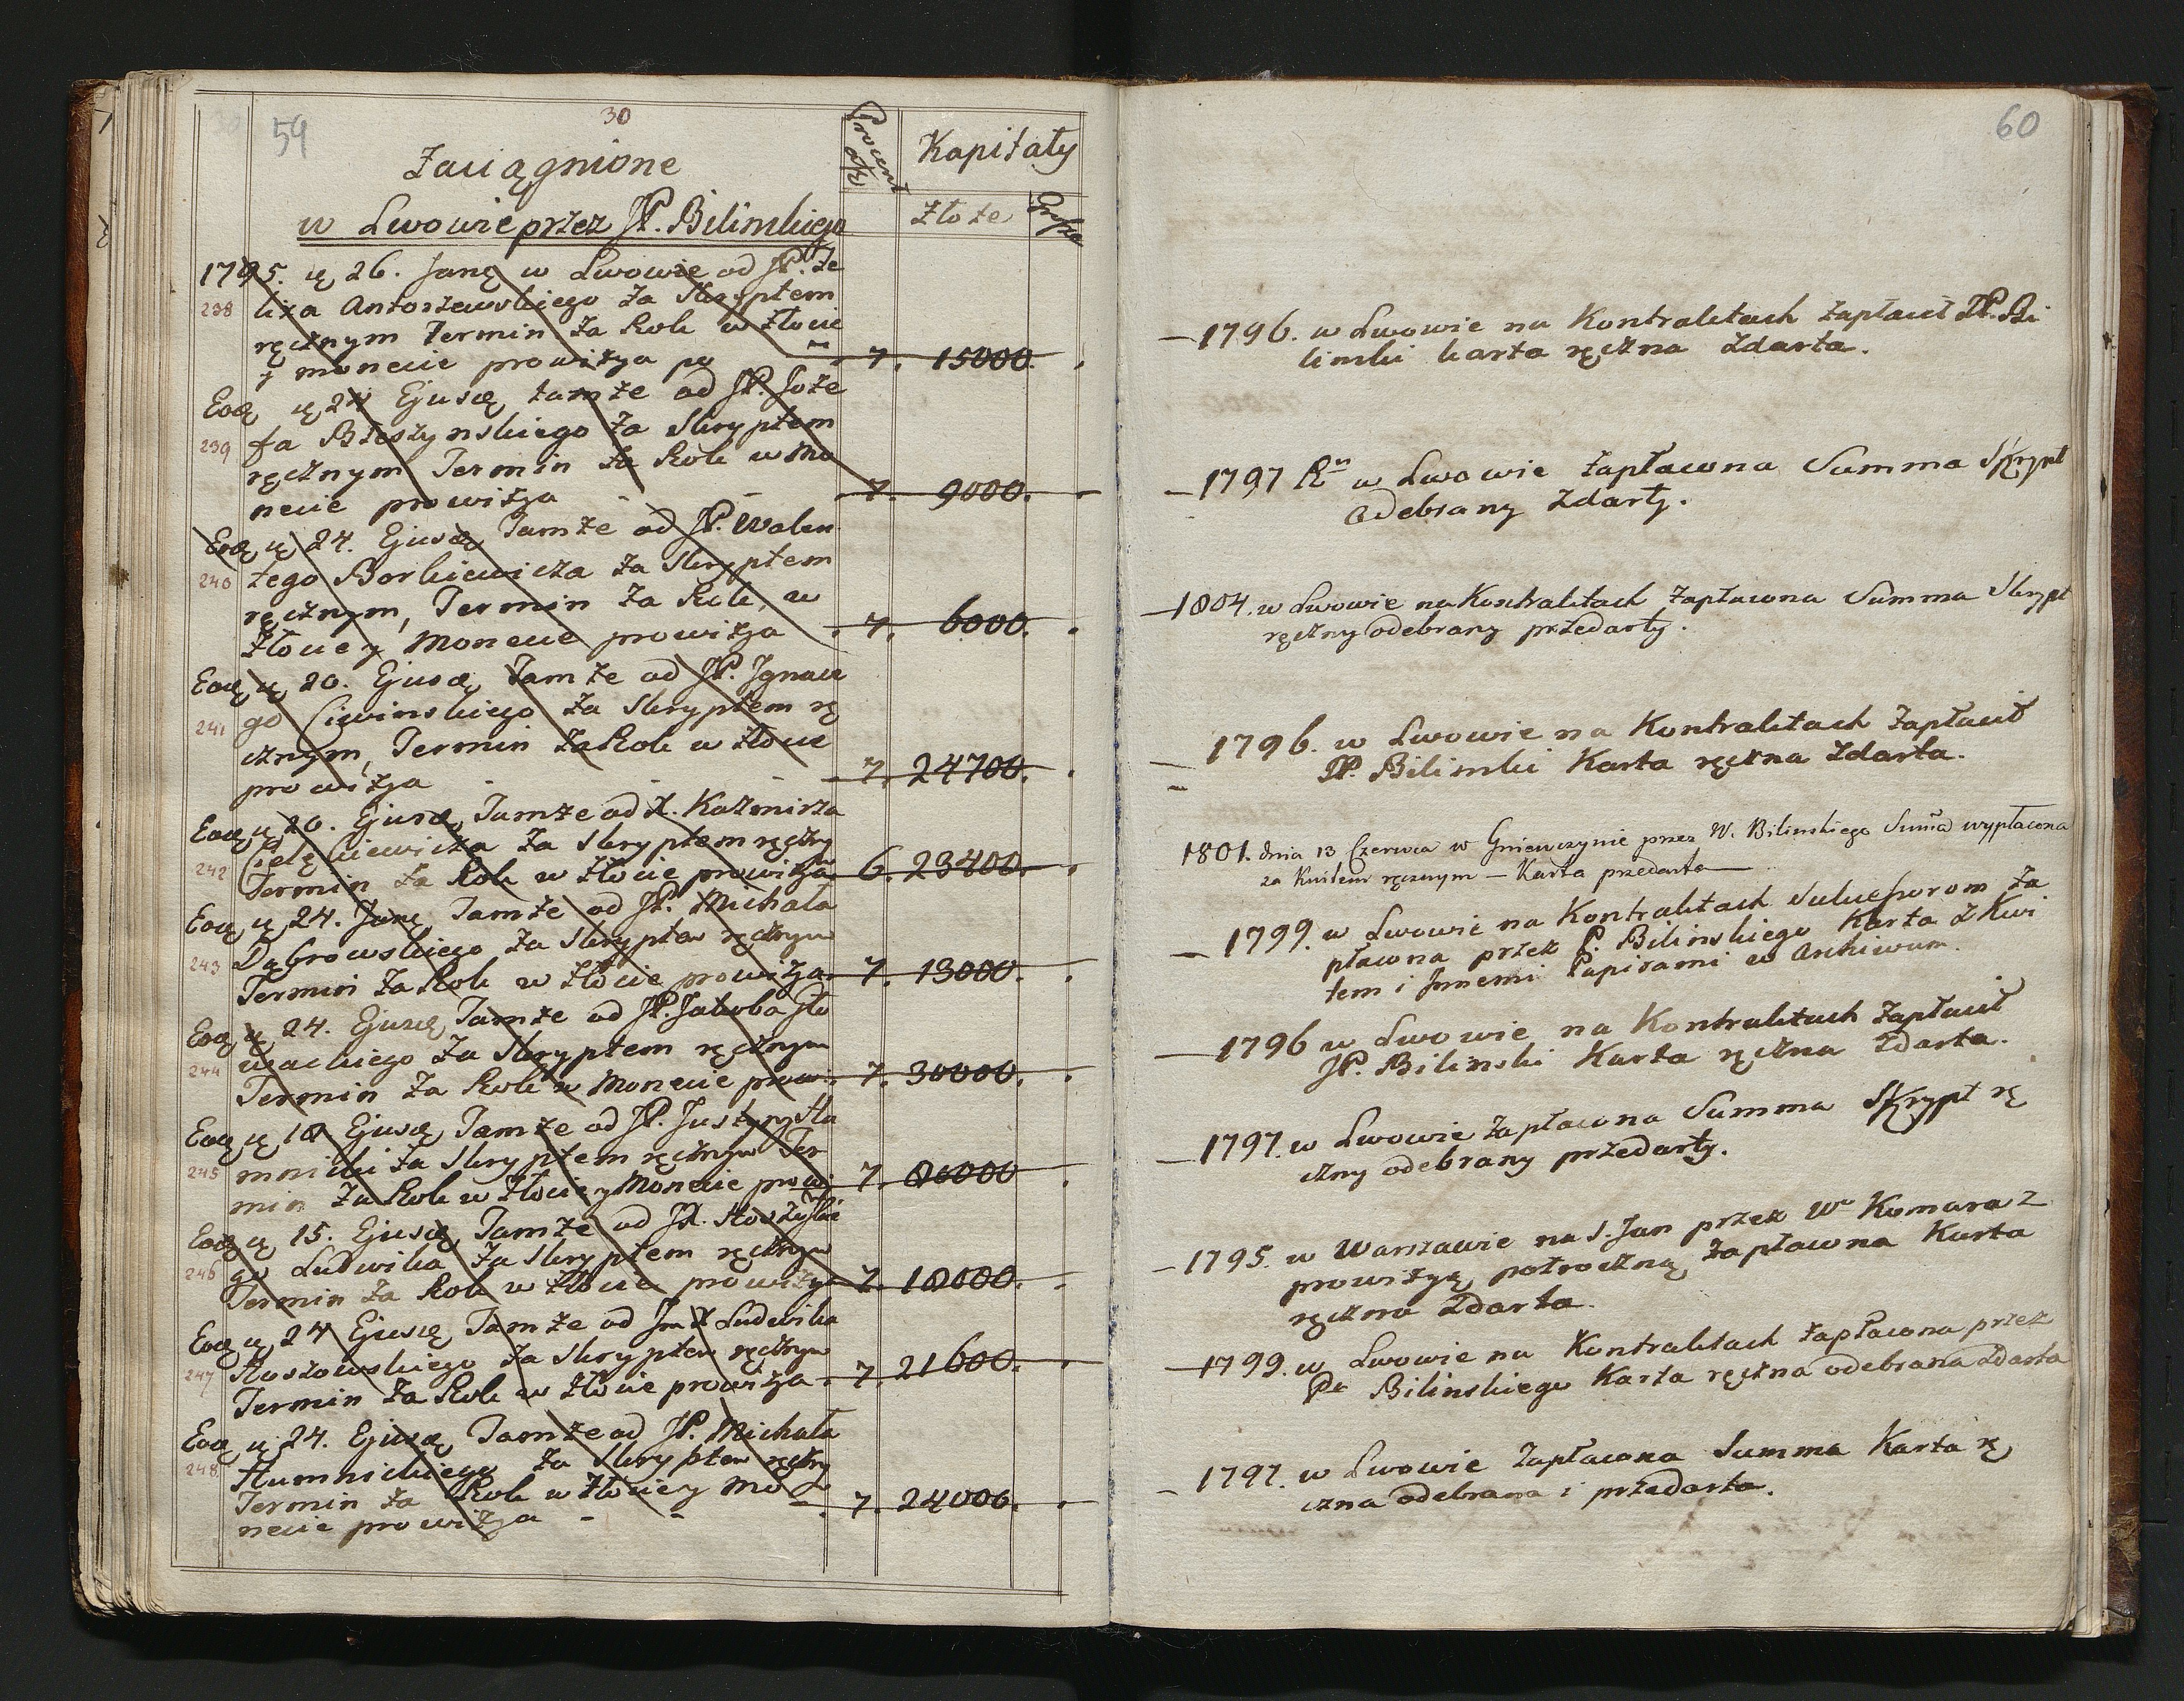 59
30
Zaciągnione
w Lwowie przez JP. Bilinskiego
Procent
Kapitały
Złote
1795. 26. Jany w Lwowie od JP. Fe
238 lixa Antoszewskiego za Skryptem
ręcznym Termin za Rok w Złocie
y monecie prowizya po 7. 15000.
Eod 24 Ejusd tamże od JP. Joze
239 fa Błeszynskiego za Skryptem
ręcznym Termin za Rok w Mo
necie prowizya - - 7. 9000.
Eod 24. Ejusd Tamże od JP. Walen
240 tego Borkiewicza za Skryptem
ręcznym, Termin za Rok, w
Złocie y Monecie prowizya 7. 6000.
Eod 20. Ejusd Tamże od JP. Ignace
241 go Ciwinskiego za Skryptem rę
cznym, Termin za Rok w Złocie
prowizya - - - 7. 24700.
Eod 20. Ejusd Tamże od X. Kazmirza
242 za Skryptem ręczny
Termin za Rok w Złocie prowizya 6. 23400.
Eod 24. Jany Tamże od JP. Michała
243 Dąbrowskiego za Skryptem ręcznym
Termin za Rok w Złocie prowizya 7. 13000.
Eod 24. Ejusd Tamże od JP. Jakuba Sło
244 wackiego za Skryptem ręcznym
Termin za Rok w Monecie prowi 7. 30000.
Eod 18 Ejusd Tamże od JP. Justyny Hu
245 mnicki za Skryptem ręcznym Ter
min za Rok w Złocie y Monecie prowi 7.
Eod 15. Ejusd Tamże od
246 go Ludwika za Skryptem ręcznym
Termin za Rok w Złocie prowizya 7. 18000.
Eod 24 Ejusd Tamże od Jm X Ludwika
247 Hoszowskiego za Skryptem ręcznym
Termin za Rok w Złocie prowizya 7. 21600.
Eod 24. Ejusd Tamże od JP. Michała
248 Humnickiego za Skryptem ręczny
Termin za Rok w Złocie y Mo
necie prowizya - - 7. 24000.
60
— 1796. w Lwowie na Kontraktach zapłacił JP. Bi
linski karta ręczna zdarta.
— 1797 Ru w Lwowie zapłacona Summa Skrypt
Odebrany zdarty.
— 1804. w Lwowie na Kontraktach zapłacona Summa Skrypt
ręczny odebrany przedarty.
— 1796. w Lwowie na Kontraktach zapłacił
JP. Bilinski Karta ręczna zdarta.
1801. dnia 13 Czerwca w Gniewczynie przez W. Bilinskiego Suma wypłacona
za Kwitem ręcznym — Karta przedarta —
— 1799. w Lwowie na Kontraktach Sukcessorom za
płacona przez P. Bilinskiego Karta z Kwi
tem i Innemi Papirami w Archiwum.
— 1796 w Lwowie na Kontraktach zapłacił
JP. Bilinski Karta ręczna zdarta.
— 1797. w Lwowie zapłacona Summa Skrypt rę
czny odebrany przedarty.
— 1795. w Warszawie na S. Jan przez Wo Komara z
prowizyą połroczną zapłacona Karta
ręczna zdarta.
— 1799. w Lwowie na Kontraktach zapłacona przez
Pa Bilinskiego Karta ręczna odebrana zdarta
— 1797. w Lwowie zapłacona Summa Karta rę
czna odebrana i przedarta.